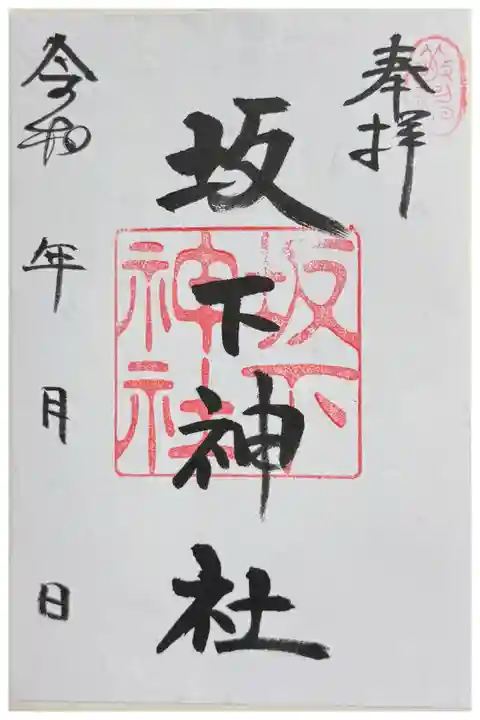 奉拝
坂下神社
坂下
神社
令和　年　月　日